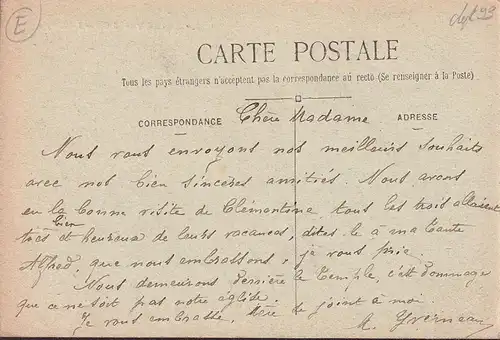 E
CARTE POSTALE
Tous les pays étrangers n'acceptent pas la correspondance au recto (Se renseigner à la Poste)
CORRESPONDANCE
Chère Madame
ADRESSE
Nous vous envoyons nos meilleurs souhaits
avec nos bien sincères amitiés. Nous avons
eu la bonne visite de Clémentine tous les trois allaient
bien
très et heureux de leurs vacances, dites le à ma tante
Alfred, que nous embrassons, je vous prie.
Nous demeurons derrière le Temple, c'est dommage
que ce ne soit pas notre église.
Je vous embrasse, se joint à moi.
A. Yverneau